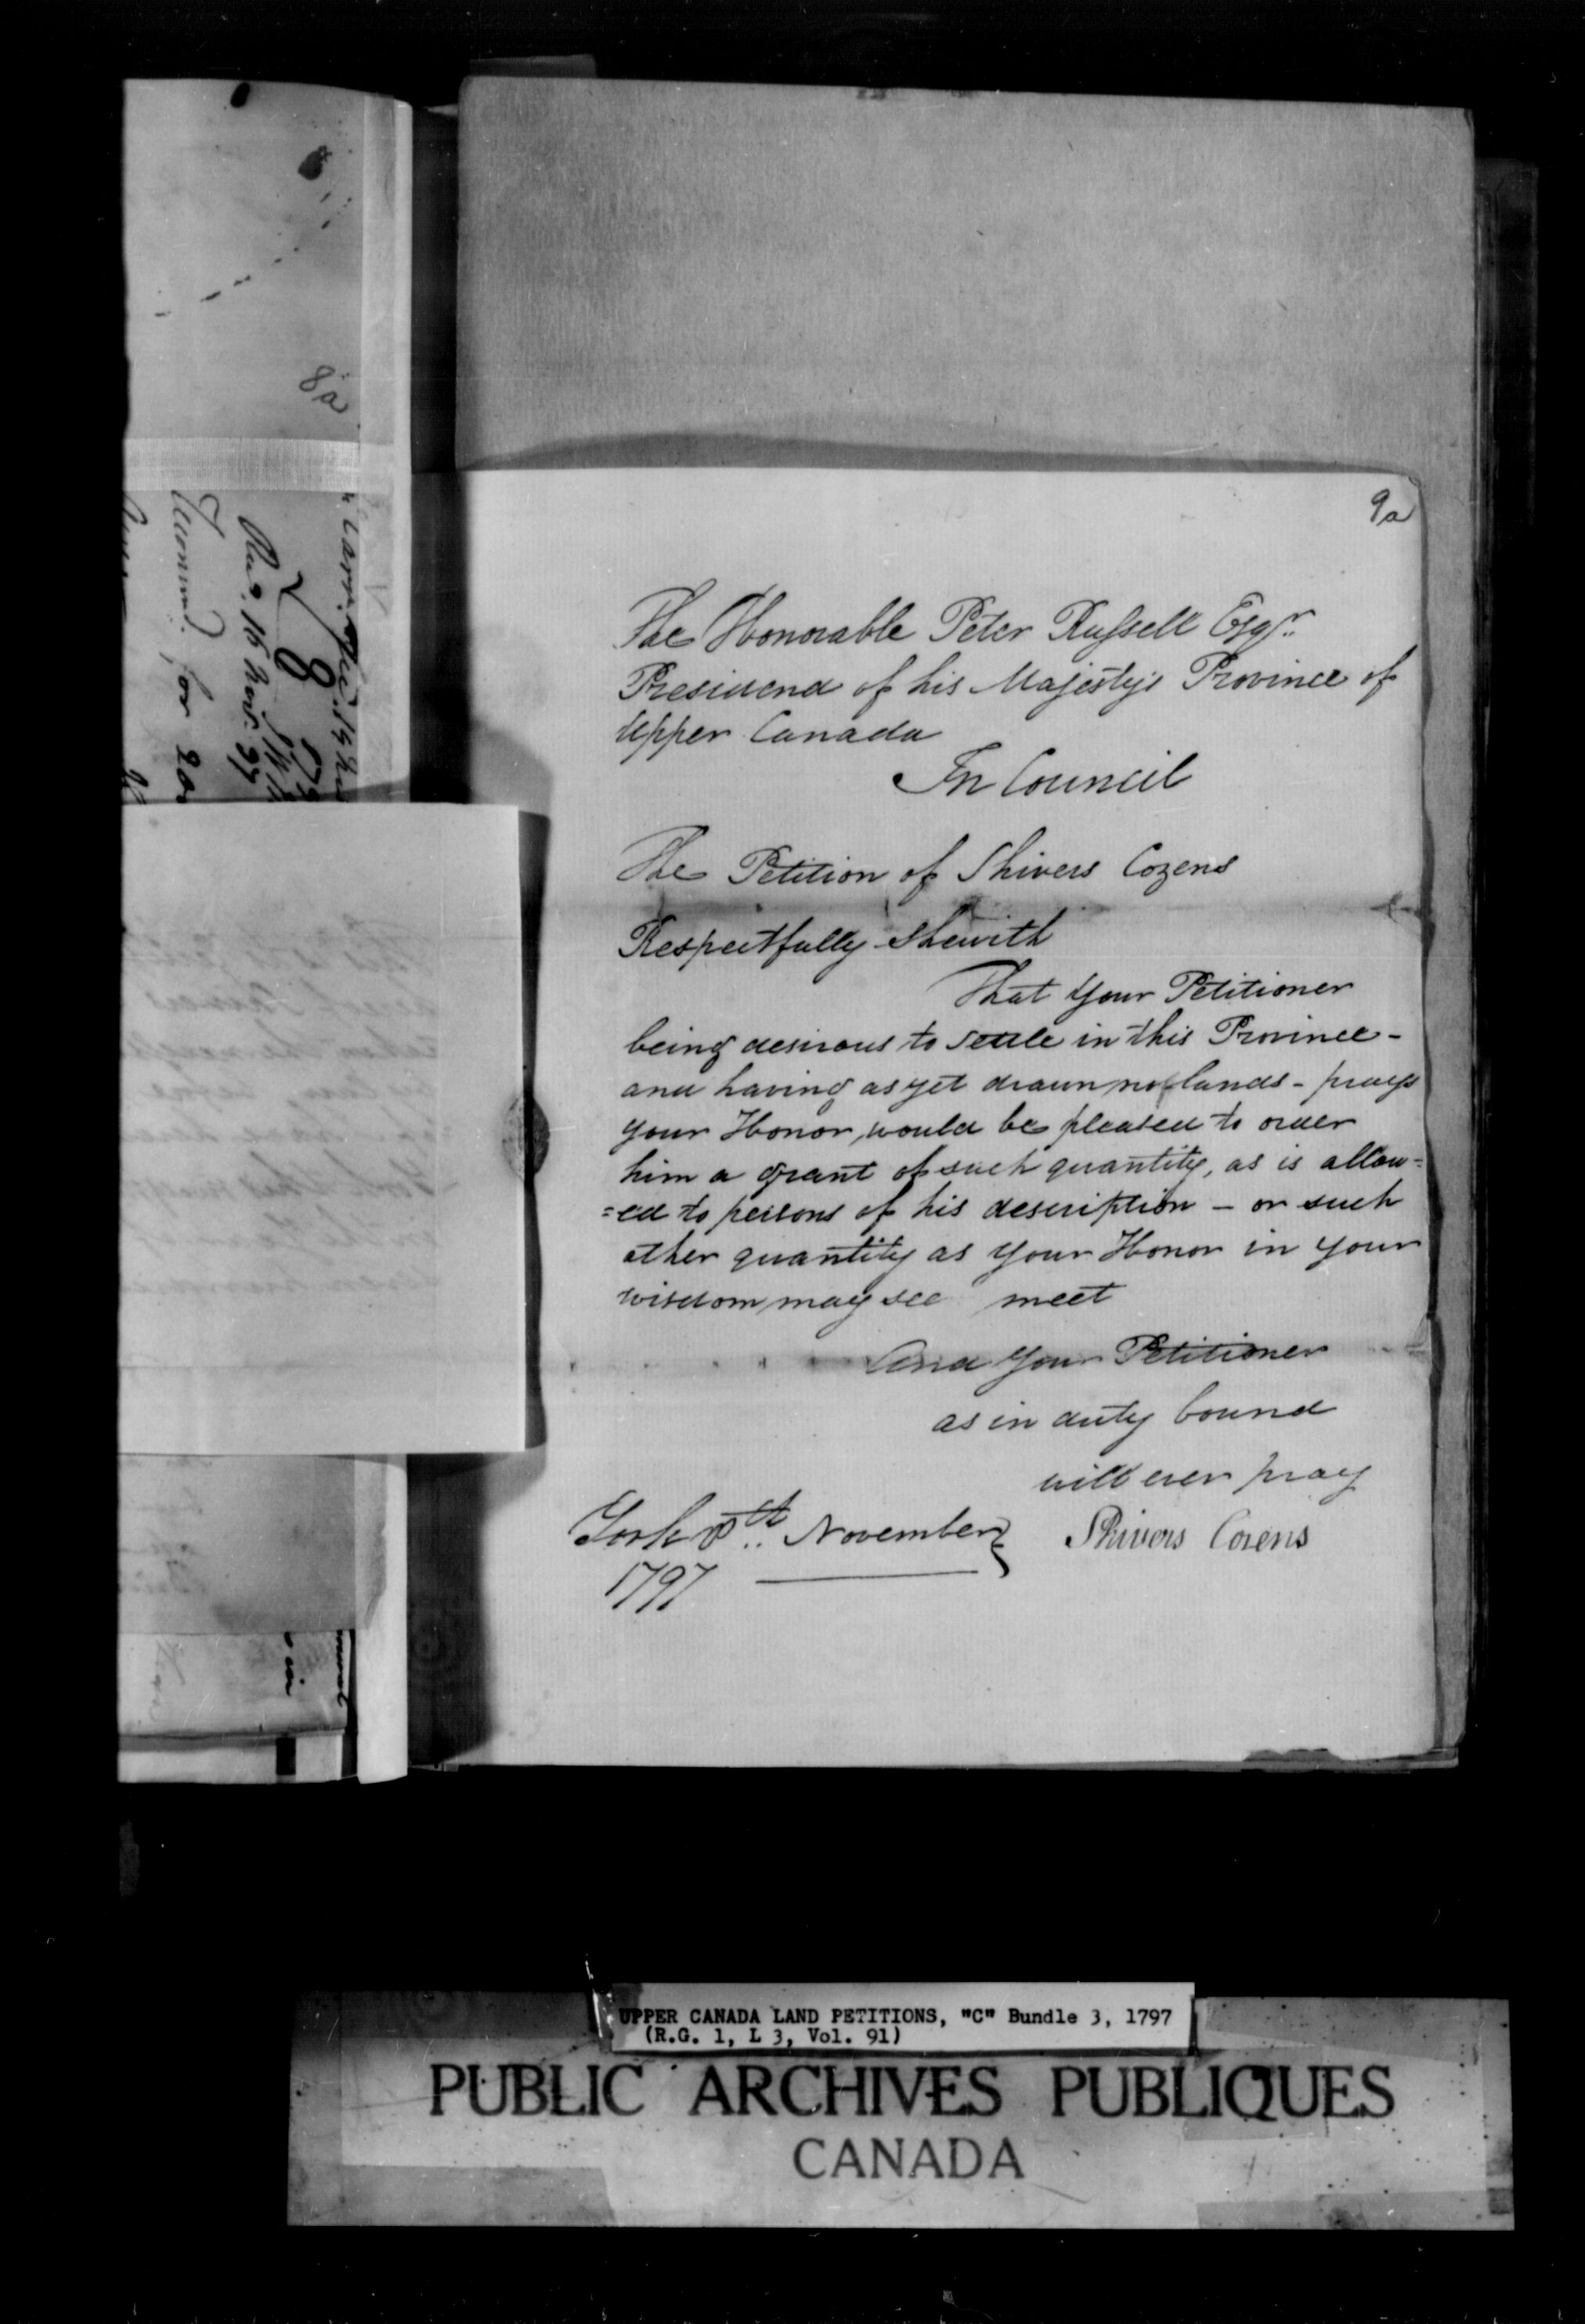 8a
Recommd. for 200
9a
The Honorable Peter Russell Esqr.
Presidend of his Majesty's Province of
Upper Canada
In Council
The Petition of Shivers Cozens
Respectfully Shewith
That your Petitioner
being desirous to settle in this Province -
and having as yet drawn no lands - prays
your Honor, would be pleased to order
him a grant of such quantity, as is allow=
=ed to persons of his description - or such
other quantity as your Honor in your
wisdom may see meet
And your Petitioner
as in duty bound
will ever pray
York 8th November
1797
Shivers Cozens
UPPER CANADA LAND PETITIONS, "C" Bundle 3, 1797
(R.G. 1, L 3, Vol. 91)
PUBLIC ARCHIVES PUBLIQUES
CANADA